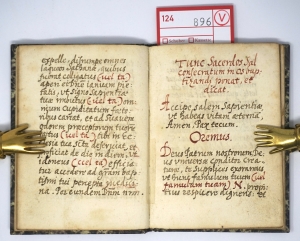 expello, disrumpe omnes
laqueos Satanæ, quibus
fuerat colligatus (vel ta)
aperi ei Dñe ianuam pie-
tatis, ut signo Sapientiæ
tuæ imbutus (vel ta) om-
nium Cupiditatum foetori-
bus careat, et ad Suavem
odorem præceptorum tuorum
lætus (vel ta) tibi in
ecclesia tua sit deserviat, et
proficiat de die in diem, vt
idoneus (vel ta) efficia-
tur accedere ad gram bap-
tismi tui percepta medici-
na. Per eundem Dnm nrm
Tunc Sacerdos Sal
consecratum in os bap-
tizandi ponat, et
dicat.
Accipe salem Sapientiæ,
ut habeas vitam æternã,
Amen. Pax tecum.
Oremus.
Deus patrum nostrorum De-
us universæ conditor Crea-
turæ, te Supplices exoramus
ut hunc famulum tuum (vel
famulam tuam) N. propi-
tius respicere digneris, et
124
896
V